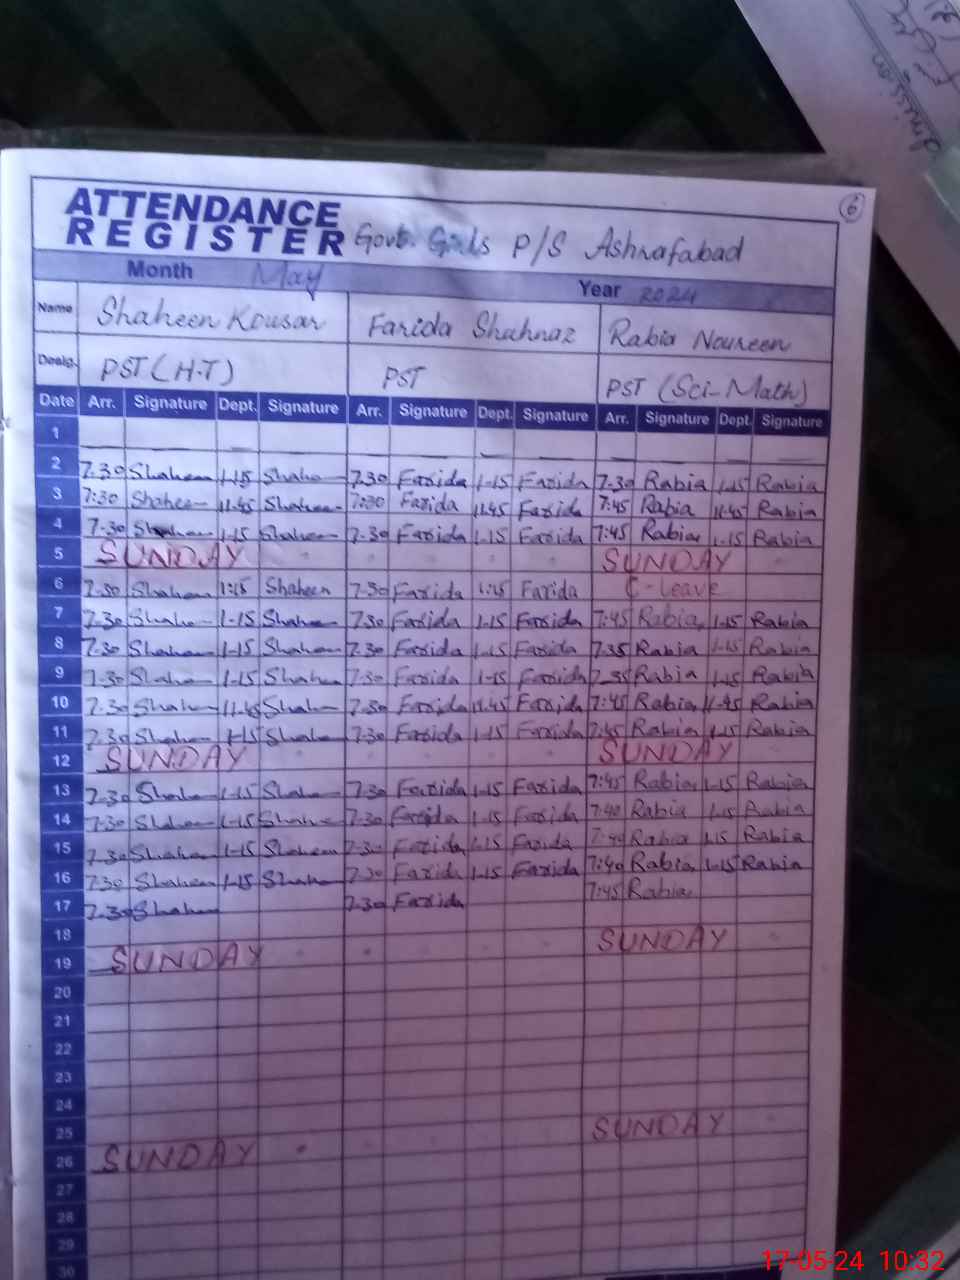 ATTENDANCE
REGISTER Govt. Girls P/S Ashrafabad
6
Month May Year 2024
Name Shaheen Kousar Farida Shahnaz Rabia Noureen
Desig. PST (H-T) PST PST (Sci-Math)
Date Arr. Signature Dept. Signature Arr. Signature Dept. Signature Arr. Signature Dept. Signature
1
2 7.30 Shaheen 1-15 Shahe 7.30 Farida 1-15 Farida 7-30 Rabia 1-15 Rabia
3 7:30 Shaheen 11.45 Shaheen 7:30 Farida 11.45 Farida 7:45 Rabia 11-45 Rabia
4 7-30 1-15 Shaheen 7-30 Farida 1-15 Farida 7:45 Rabia 1-15 Rabia
5 SUNDAY SUNDAY
6 7-30 Shaheen 1:15 Shaheen 7-30 Farida 1:15 Farida C-Leave
7 7.30 Shahe 1-15 Shahe 7.30 Farida 1-15 Farida 7:45 Rabia 1-15 Rabia
8 7.30 Shahe 1-15 Shahe 7.30 Farida 1-15 Farida 7.35 Rabia 1-15 Rabia
9 7.30 Shahe 1-15 Shahe 7-30 Farida 1-15 Farida 7-35 Rabia 1-15 Rabia
10 7.30 Shahe 11-45 Shahe 7.30 Farida 11.45 Farida 7:45 Rabia 11-45 Rabia
11 7.30 Shahe 1-15 Shahe 7.30 Farida 1-15 Farida 7:45 Rabia 1-15 Rabia
12 SUNDAY SUNDAY
13 7.30 Shahe 1-15 Shahe 7.30 Farida 1-15 Farida 7:45 Rabia 1-15 Rabia
14 7-30 Shahe 1-15 Shahe 7.30 Farida 1-15 Farida 7:40 Rabia 1-15 Rabia
15 7.30 Shaheen 1-15 Shaheen 7-30 Farida 1-15 Farida 7-40 Rabia 1-15 Rabia
16 7.30 Shaheen 1-15 Shahe 7.30 Farida 1-15 Farida 7:40 Rabia 1-15 Rabia
17 7.30 Shaheen 7.30 Farida 7:45 Rabia
18
19 SUNDAY SUNDAY
20
21
22
23
24
25
26 SUNDAY SUNDAY
27
28
29
30
17-05-24 10:32